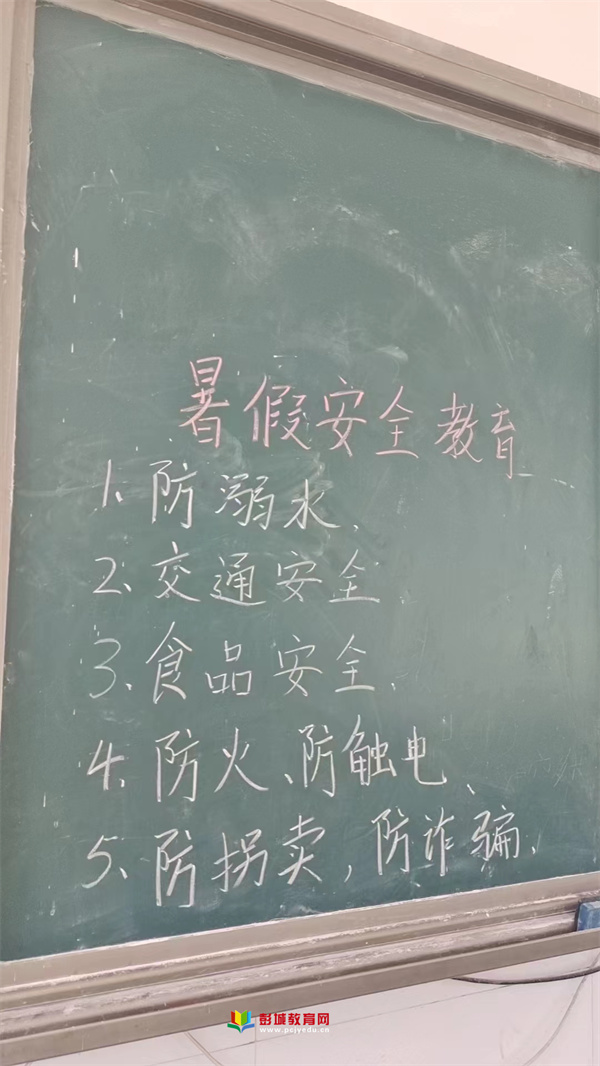 暑假安全教育
1、防溺水、
2、交通安全、
3、食品安全、
4、防火、防触电、
5、防拐卖，防诈骗、
彭城教育网
www.pcjyedu.cn